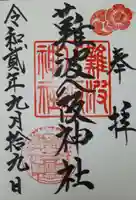 奉拝
難波八阪神社
令和貳年九月拾九日